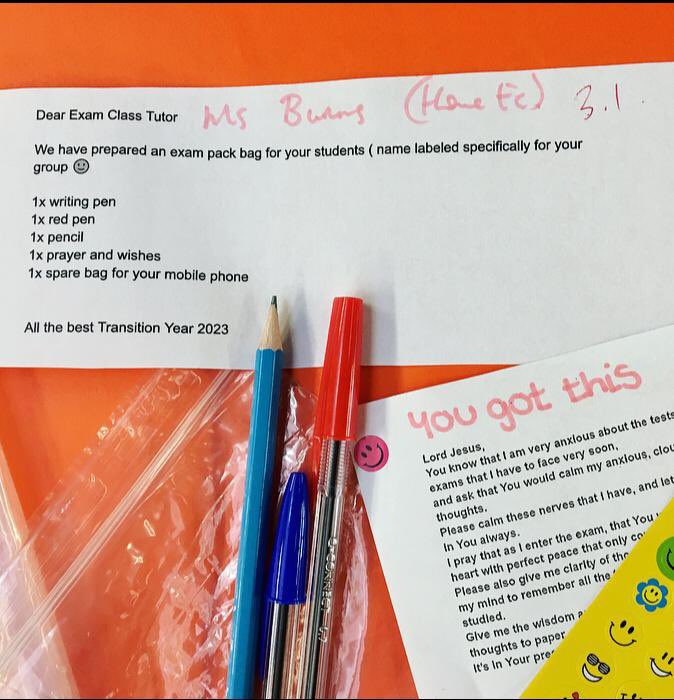 Dear Exam Class Tutor Ms Burns (Home Ec) 3.1.
We have prepared an exam pack bag for your students ( name labeled specifically for your
group
1x writing pen
1x red pen
1x pencil
1x prayer and wishes
1x spare bag for your mobile phone
All the best Transition Year 2023
you got this
Lord Jesus,
You know that I am very anxious about the tests
exams that I have to face very soon,
and ask that You would calm my anxious,
thoughts.
Please calm these nerves that I have, and let
In You always.
I pray that as I enter the exam, that You
heart with perfect peace that only
Please also give me clarity of
my mind to remember all the
studied.
Give me the wisdom
thoughts to paper
It's In Your